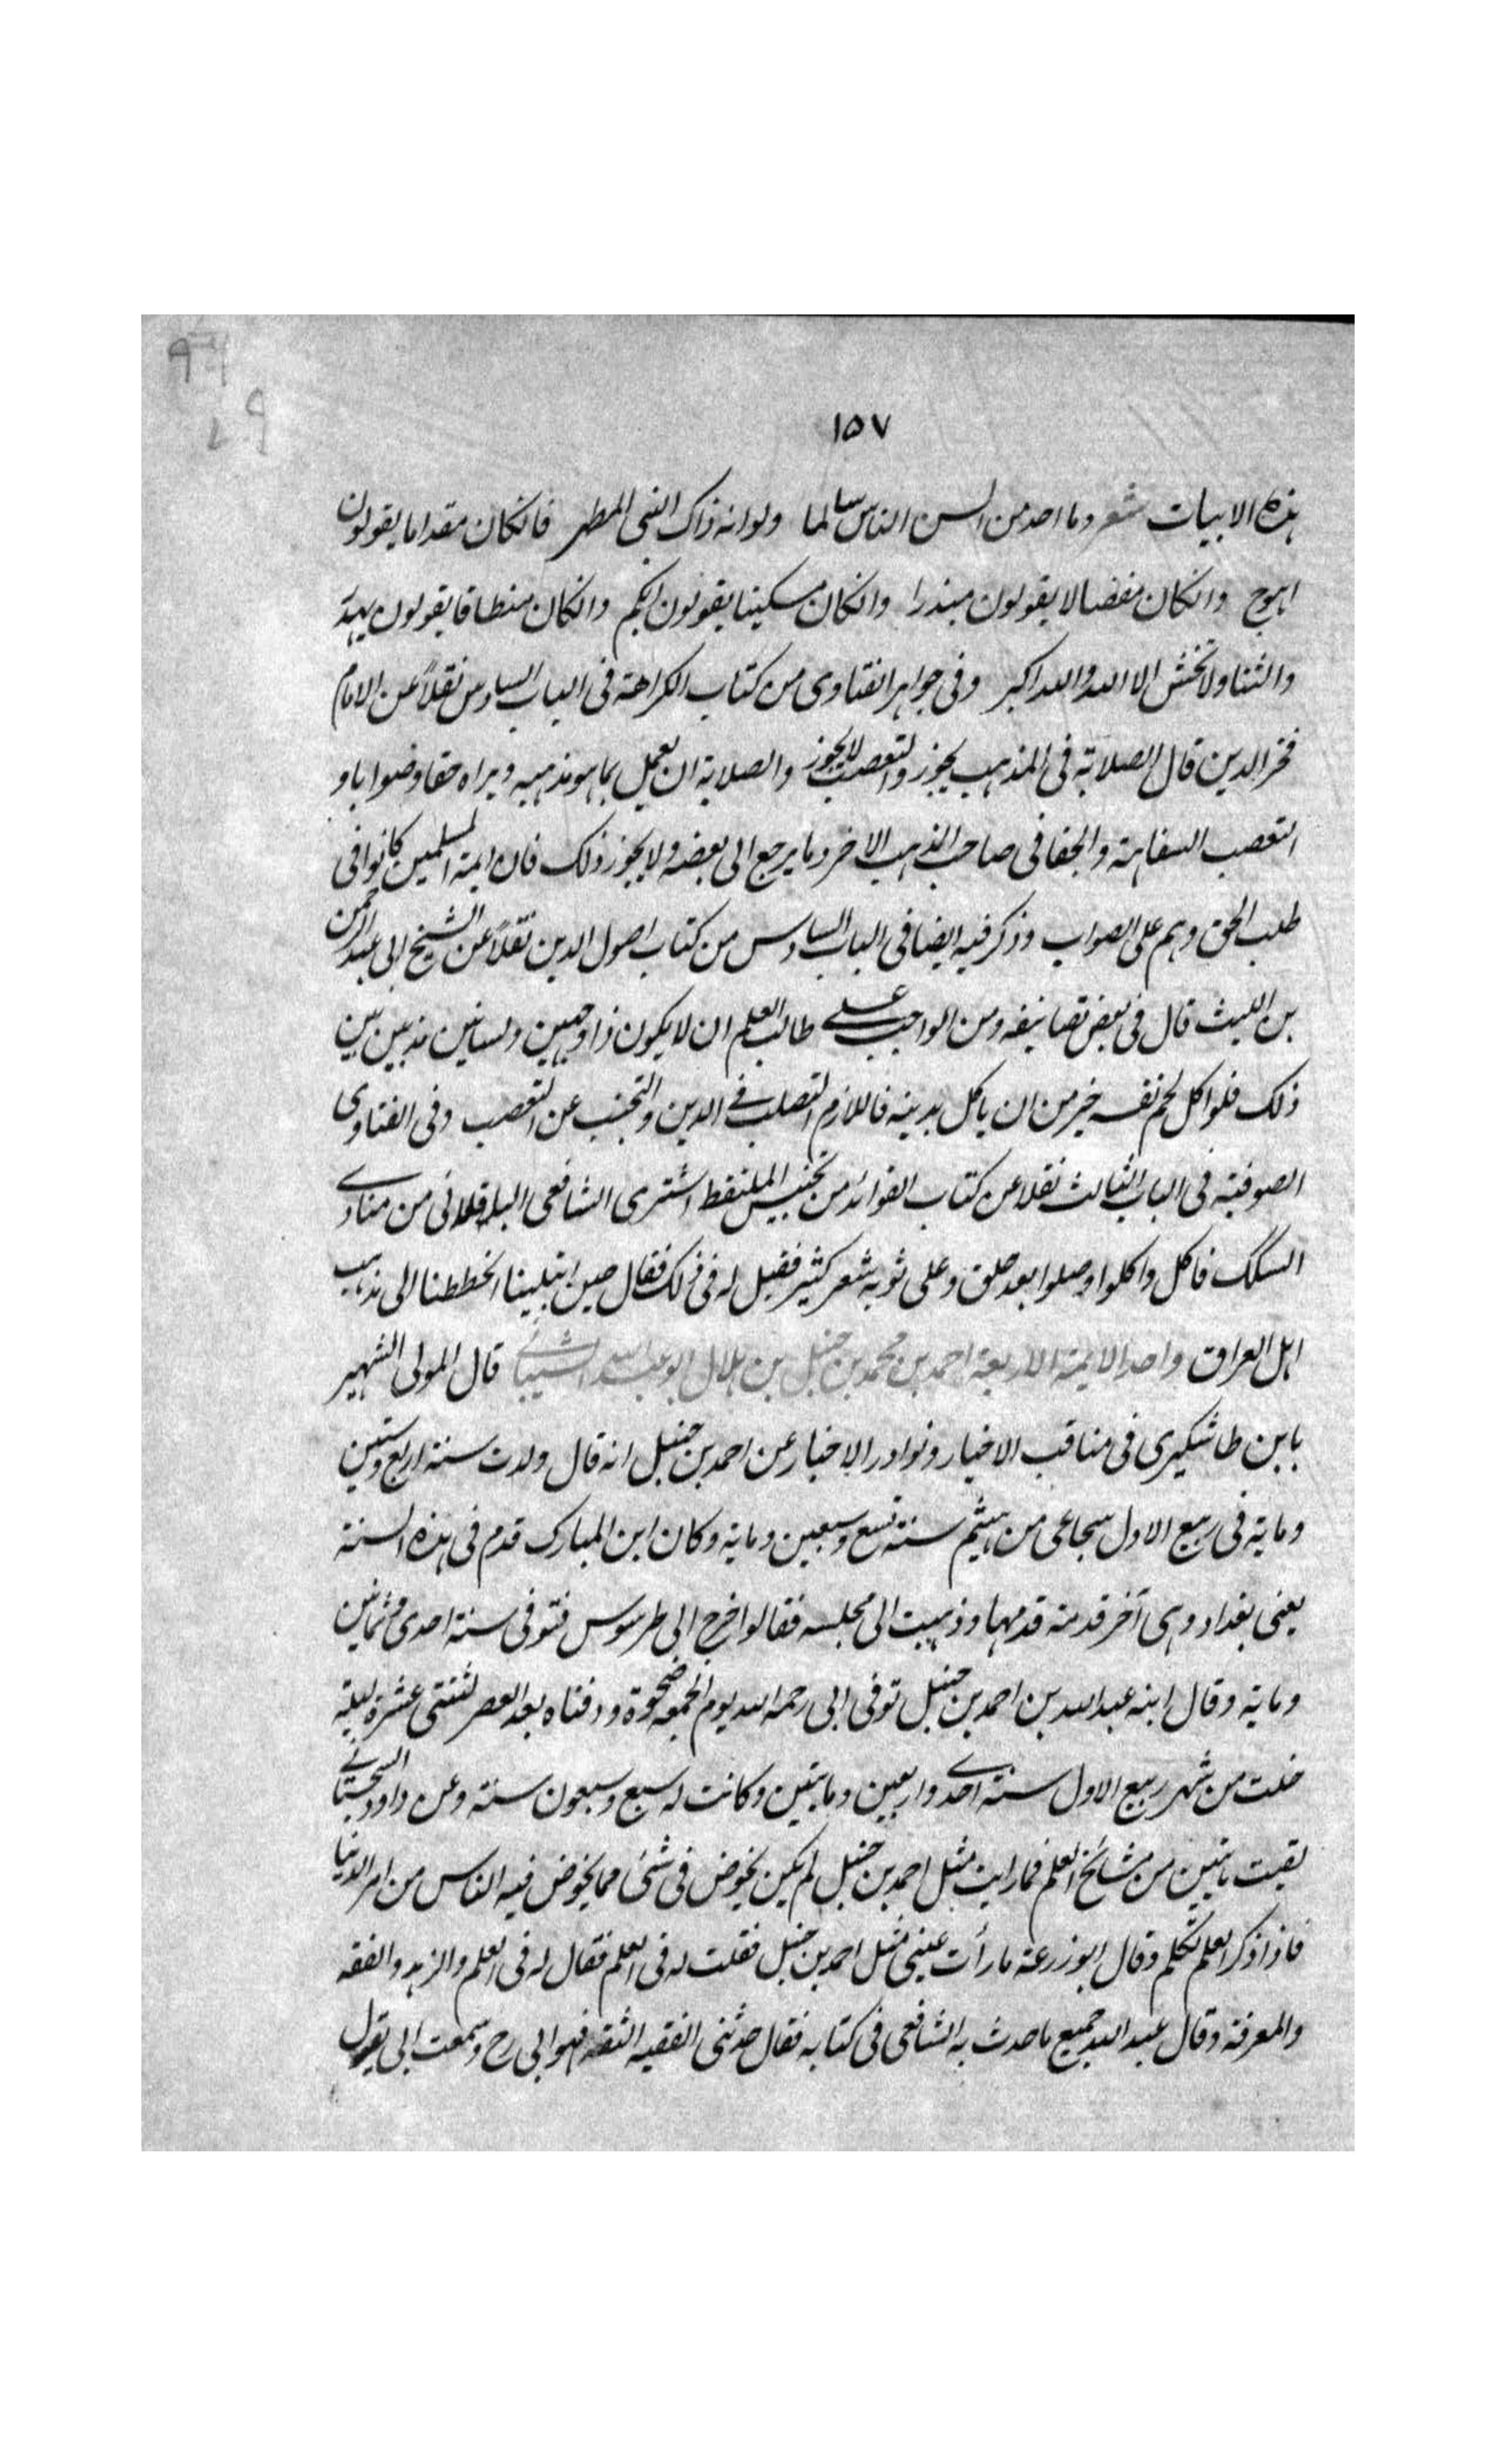 ١٥٧
هذه الابيات شعر وما احد من السن الناس سالما ولو انه ذاك النبى المطهر فانكان مقداما يقولون
اهوج وانكان مفضالا يقولون مبذرا وانكان مسكينا يقولون ابكم وانكان منطاقا يقولون
والثنا ولا تخش الا الله والله اكبر وفى جواهر الفتاوى من كتاب الكراهة فى الباب السادس نقلاً عن الامام
فخر الدين قال الصلابة فى المذهب يجوز والتعصب لا يجوز والصلابة ان يعمل بما هو مذهبه ويراه حقا وصوابا و
التعصب السفاهة والجفا فى صاحب المذهب الاخر وما يرجع الى بعضه ولا يجوز ذلك فان ايمة المسلمين كانوا فى
طلب الحق وهم على الصواب وذكر فيه ايضا فى الباب السادس من كتاب اصول الدين نقلاً عن الشيخ ابى عبد الرحمن
بن الليث قال فى بعض تصانيفه ومن الواجب على طالب العلم ان لا يكون ذا وجهين ولسانين مذبذبين بين
ذلك فلو اكل لحم نفسه خير من ان ياكل بدينه فاللازم التصلب فى الدين والتجنب عن التعصب وفى الفتاوى
الصوفية فى الباب الثالث نقلا عن كتاب الفوائد من تجنيس الملتقط اشترى الشافعى الباقلانى من منادى
السكك فاكل واكلوا وصلوا بعد حلق وعلى ثوبه شعر كثير فقيل له فى ذلك فقال حين ابتلينا انحططنا الى مذهب
اهل العراق واحد الايمة الاربعة احمد بن محمد بن حنبل بن هلال ابو عبد الله الشيبانى قال المولى الشهير
بابن طاشكبرى فى مناقب الاخيار ونوادر الاخبار عن احمد بن حنبل انه قال ولدت سنة اربع وستين
وماية فى ربيع الاول سماعى من هشيم سنة تسع وسبعين وماية وكان ابن المبارك قدم فى هذه السنة
يعنى بغداد وهى آخر قدمة قدمها وذهبت الى مجلسه فقالوا خرج الى طرسوس فتوفى سنة احدى وثمانين
وماية وقال ابنه عبد الله بن احمد بن حنبل توفى ابى رحمه الله يوم الجمعة ضحوة ودفناه بعد العصر لثنتى عشرة ليلة
خلت من شهر ربيع الاول سنة احدى واربعين ومايتين وكانت له سبع وسبعون سنة وعن داود السجستانى
لقيت مايتين من مشايخ العلم فما رايت مثل احمد بن حنبل لم يكن يخوض فى شئ مما يخوض فيه الناس من امر الدنيا
فاذا ذكر العلم تكلم وقال ابو زرعة ما رأت عينى مثل احمد بن حنبل فقلت له فى العلم فقال له فى العلم والزهد والفقه
والمعرفة وقال عبد الله جميع ما حدث به الشافعى فى كتابه فقال حدثنى الفقيه الثقة فهو ابى رح وسمعت ابى يقول